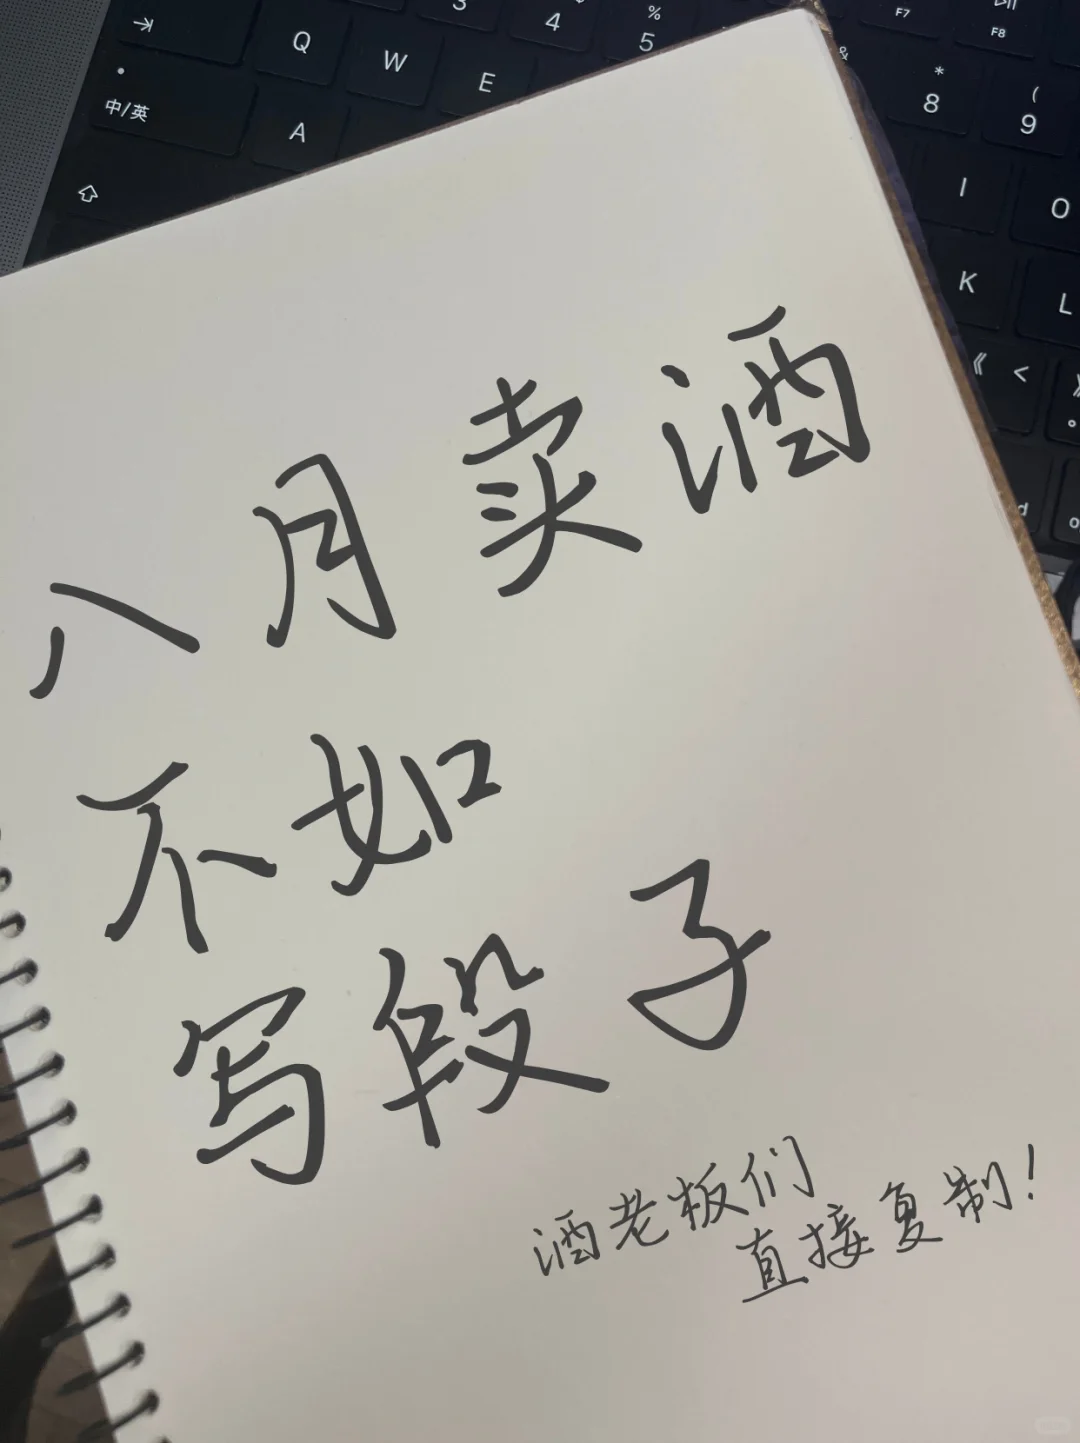 3 4 % 5 F7 F8
Q W E & * 8 ( 9
中/英 A I O
K L
《 <
八月卖酒
不如
写段子
酒老板们
直接复制!